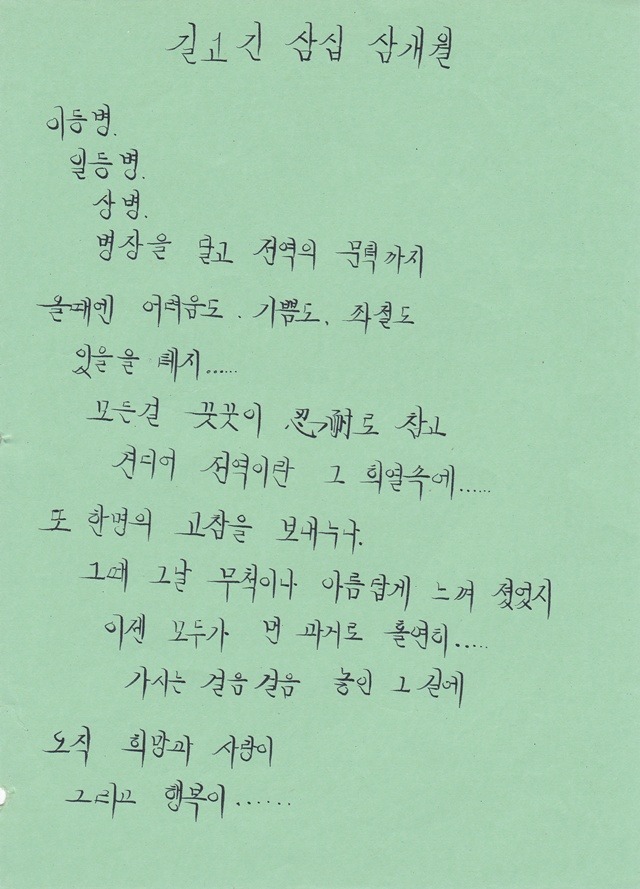 길고 긴 삼십 삼개월
이등병.
일등병.
상병.
병장을 달고 전역의 문턱까지
올때엔 어려움도. 기쁨도, 좌절도
있을을 테지......
모든걸 꿋꿋이 忍耐로 참고
견디어 전역이란 그 희열속에......
또 한명의 고참을 보내누나.
그때 그날 무척이나 아름답게 느껴 졌었지
이젠 모두가 먼 과거로 홀연히.....
가시는 걸음걸음 놓인 그 길에
오직 희망과 사랑이
그리고 행복이......